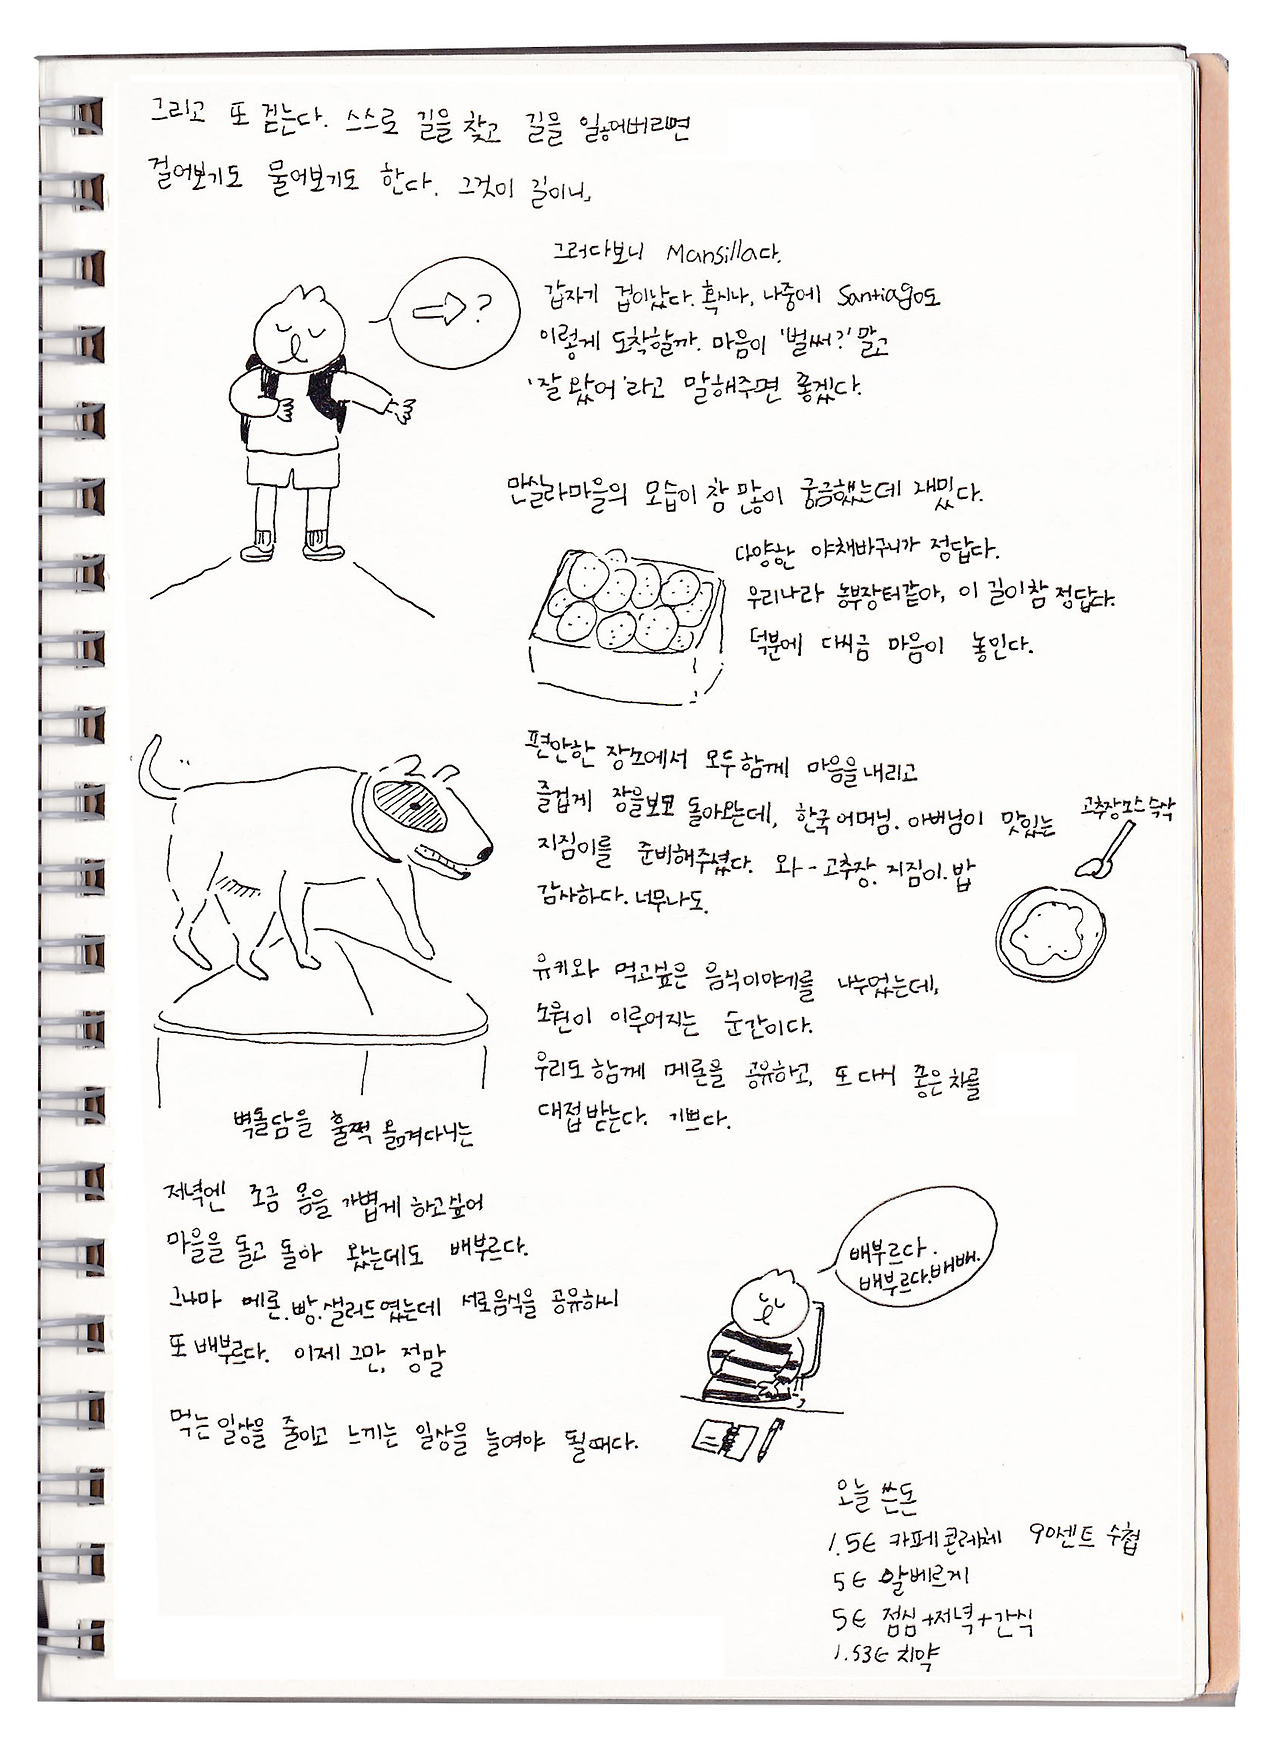 그리고 또 걷는다. 스스로 길을 찾고 길을 잃어버리면
걸어보기도 물어보기도 한다. 그것이 길이니,
→?
그러다보니 Mansilla다.
갑자기 겁이났다. 혹시나, 나중에 Santiago도
이렇게 도착할까. 마음이 '벌써?' 말고
'잘 왔어'라고 말해주면 좋겠다.
만실라마을의 모습이 참 많이 궁금했는데 재밌다.
다양한 야채바구니가 정답다.
우리나라 농부장터같아, 이 길이 참 정답다.
덕분에 다시금 마음이 놓인다.
편안한 장소에서 모두함께 마음을 내리고
즐겁게 장을보고 돌아왔는데, 한국 어머님. 아버님이 맛있는
지짐이를 준비해주셨다. 와-고추장. 지짐이. 밥
감사하다. 너무나도.
고추장소스 슥삭
유키와 먹고싶은 음식이야기를 나누었는데,
소원이 이루어지는 순간이다.
우리도 함께 메론을 공유하고, 또 다시 좋은 차를
대접받는다. 기쁘다.
벽돌담을 훌쩍 옮겨다니는
저녁엔 조금 몸을 가볍게 하고싶어
마을을 돌고 돌아 왔는데도 배부르다.
그나마 메론.빵.샐러드였는데 서로음식을 공유하니
또 배부르다. 이제 그만, 정말
먹는 일상을 줄이고 느끼는 일상을 늘여야 될때다.
배부르다.
배부르다.배배.
오늘 쓴돈
1.5€ 카페콘레체 90센트 수첩
5€ 알베르게
5€ 점심+저녁+간식
1.53€ 치약